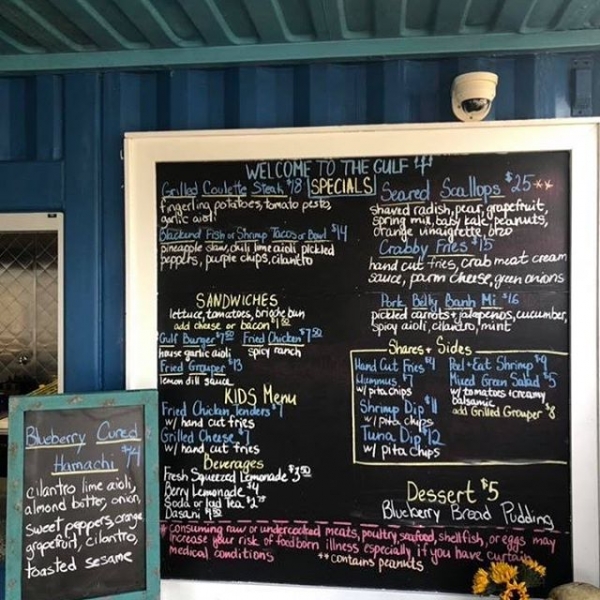 WELCOME TO THE GULF
SPECIALS
Grilled Coulette Steak $18
fingerling potatoes, tomato pesto,
garlic aioli
Blackened Fish or Shrimp Tacos or Bowl $14
pineapple slaw, chili lime aioli pickled
peppers, purple chips, cilantro
Seared Scallops $25**
shaved radish, pear, grapefruit,
spring mix, baby kale, peanuts,
orange vinaigrette, orzo
Crabby Fries $15
hand cut fries, crab meat cream
sauce, parm cheese, green onions
Pork Belly Banh Mi $16
pickled carrots + jalapenos, cucumber,
spicy aioli, cilantro, mint
SANDWICHES
lettuce, tomatoes, brioche bun
add cheese or bacon $1.50
Gulf Burger $7.50 Fried Chicken $7.50
house garlic aioli spicy ranch
Fried Grouper $13
lemon dill sauce
KIDS Menu
Fried Chicken Tenders $7
w/ hand cut fries
Grilled Cheese $7
w/ hand cut fries
Beverages
Fresh Squeezed Lemonade $3.50
Berry Lemonade $4
Soda or Iced Tea
Dasani
Shares + Sides
Hand Cut Fries $4
Hummus $7
w/ pita chips
Shrimp Dip $11
w/ pita chips
Tuna Dip $12
w/ pita chips
Peel + Eat Shrimp $9
Mixed Green Salad $5
w/ tomatoes + creamy
balsamic
add Grilled Grouper $8
Dessert $5
Blueberry Bread Pudding
* consuming raw or undercooked meats, poultry, seafood, shellfish, or eggs may
increase your risk of foodborn illness especially if you have curtain
medical conditions
** contains peanuts
Blueberry Cured
Hamachi $14
cilantro lime aioli,
almond bitter, onion,
sweet peppers, orange,
grapefruit, cilantro,
toasted sesame